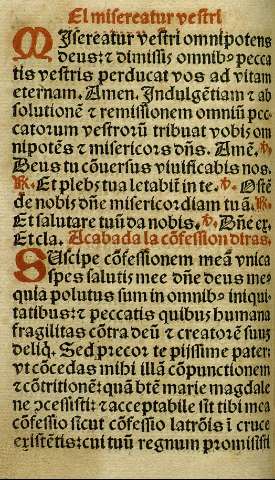 El misereatur vestri
MIsereatur vestri omnipotens
deus: ⁊ dimissis omnibꝰ pecca
tis vestris perducat vos ad vitam
eternam. Amen. Indulgẽtiam ⁊ ab
solutionẽ ⁊ remissionem omniũ pec-
catorum vestrorũ tribuat vobis om
nipotẽs ⁊ misericors dñs. Amẽ. ℣.
Deus tu cõuersus viuificabis nos.
℟. Et plebs tua letabit̃ in te. ℣. Ostẽ
de nobis dñe misericordiam tuã. ℟.
Et salutare tuũ da nobis. ℣. Dñe ex.
Et cla. Acabada la cõfession diras.
SUscipe cõfessionem meã vnica
spes salutis mee dñe deus meꝰ
quia polutus sum in omnibꝰ iniqui
tatibus: ⁊ peccatis quibus humana
fragilitas cõtra deũ ⁊ creatorẽ suũ
deliq̃. Sed precor te pijssime pater:
vt cõcedas mihi illã cõpunctionem
⁊ cõtritionẽ: quã btẽ marie magdale
ne ↄcessisti: ⁊ acceptabile sit tibi mea
cõfessio sicut cõfessio latrõis ĩ cruce
existẽtis: cui tuũ regnum promisisti